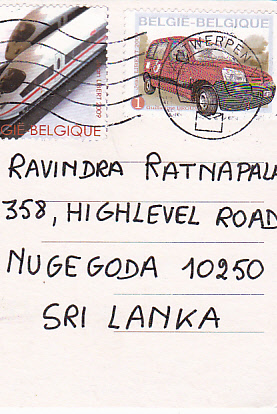 BELGIE-BELGIQUE
GIE-BELGIQUE
1
RAVINDRA RATNAPALA
358, HIGHLEVEL ROAD
NUGEGODA 10250
SRI LANKA